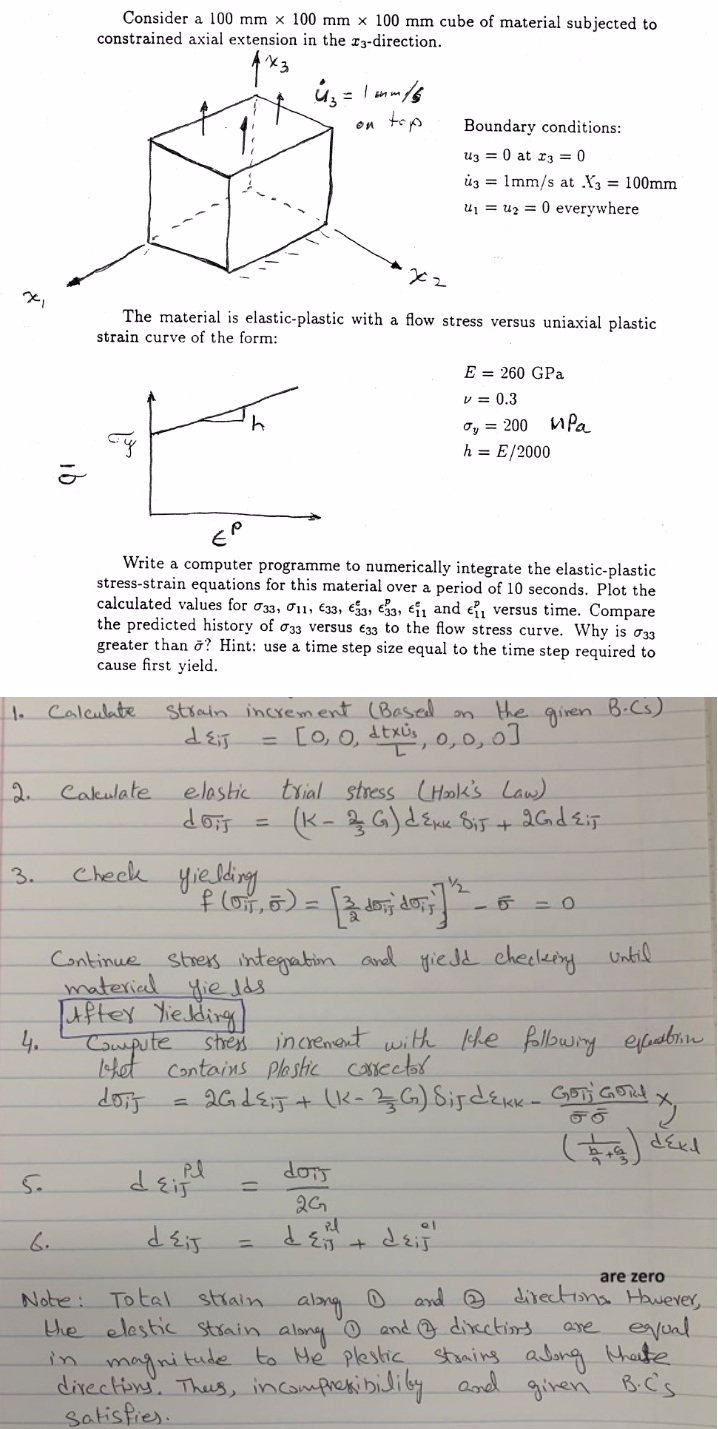 Consider a 100 mm × 100 mm × 100 mm cube of material subjected to
constrained axial extension in the x₃-direction.
x₃
u̇₃ = 1 mm/s
on top
Boundary conditions:
u₃ = 0 at x₃ = 0
u̇₃ = 1mm/s at X₃ = 100mm
u₁ = u₂ = 0 everywhere
x₁
x₂
The material is elastic-plastic with a flow stress versus uniaxial plastic
strain curve of the form:
E = 260 GPa
ν = 0.3
σy = 200 MPa
h = E/2000
σy
h
σ̄
ϵᵖ
Write a computer programme to numerically integrate the elastic-plastic
stress-strain equations for this material over a period of 10 seconds. Plot the
calculated values for σ₃₃, σ₁₁, ϵ₃₃, ϵᵉ₃₃, ϵᵖ₃₃, ϵᵉ₁₁ and ϵᵖ₁₁ versus time. Compare
the predicted history of σ₃₃ versus ϵ₃₃ to the flow stress curve. Why is σ₃₃
greater than σ̄? Hint: use a time step size equal to the time step required to
cause first yield.
1. Calculate strain increment (Based on the given B.C's)
dεij = [0, 0, dt×u̇₃/L, 0, 0, 0]
2. Calculate elastic trial stress (Hook's Law)
dσij = (K - 2/3 G) dεkk δij + 2G dεij
3. Check yielding
f(σij, σ̄) = [3/2 dσij' dσij']^1/2 - σ̄ = 0
Continue stress integration and yield checking until
material yields
After Yielding
4. Compute stress increment with the following equation
that contains plastic corrector
dσij = 2G dεij + (K - 2/3 G) δij dεkk - Gσij' Gσkl'/σ̄ σ̄ ×
(1/(h/9 + G/3)) dεkl
5. dεij^pl = dσij/2G
6. dεij = dεij^pl + dεij^el
are zero
Note: Total strain along ① and ② directions. However,
the elastic strain along ① and ② directions are equal
in magnitude to the plastic strains along these
directions. Thus, incompressibility and given B.C's
satisfies.